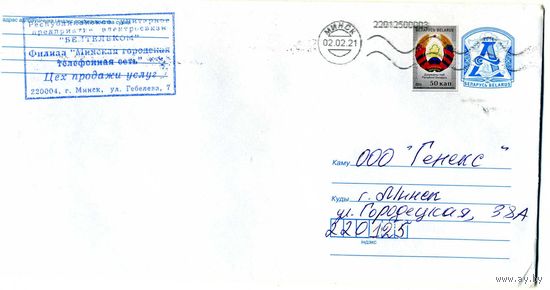 Республиканское унитарное
предприятие электросвязи
"БЕЛТЕЛЕКОМ"
Филиал "Минская городская
телефонная сеть"
Цех продажи услуг
220004, г. Минск, ул. Гебелева, 7
МИНСК
02.02.21
22012500003
БЕЛАРУСЬ BELARUS
50 кап
А
БЕЛАРУСЬ BELARUS
Каму ООО "Генекс"
Куды г. Минск
ул. Городецкая, 38А
220125
індэкс
www.ay.by